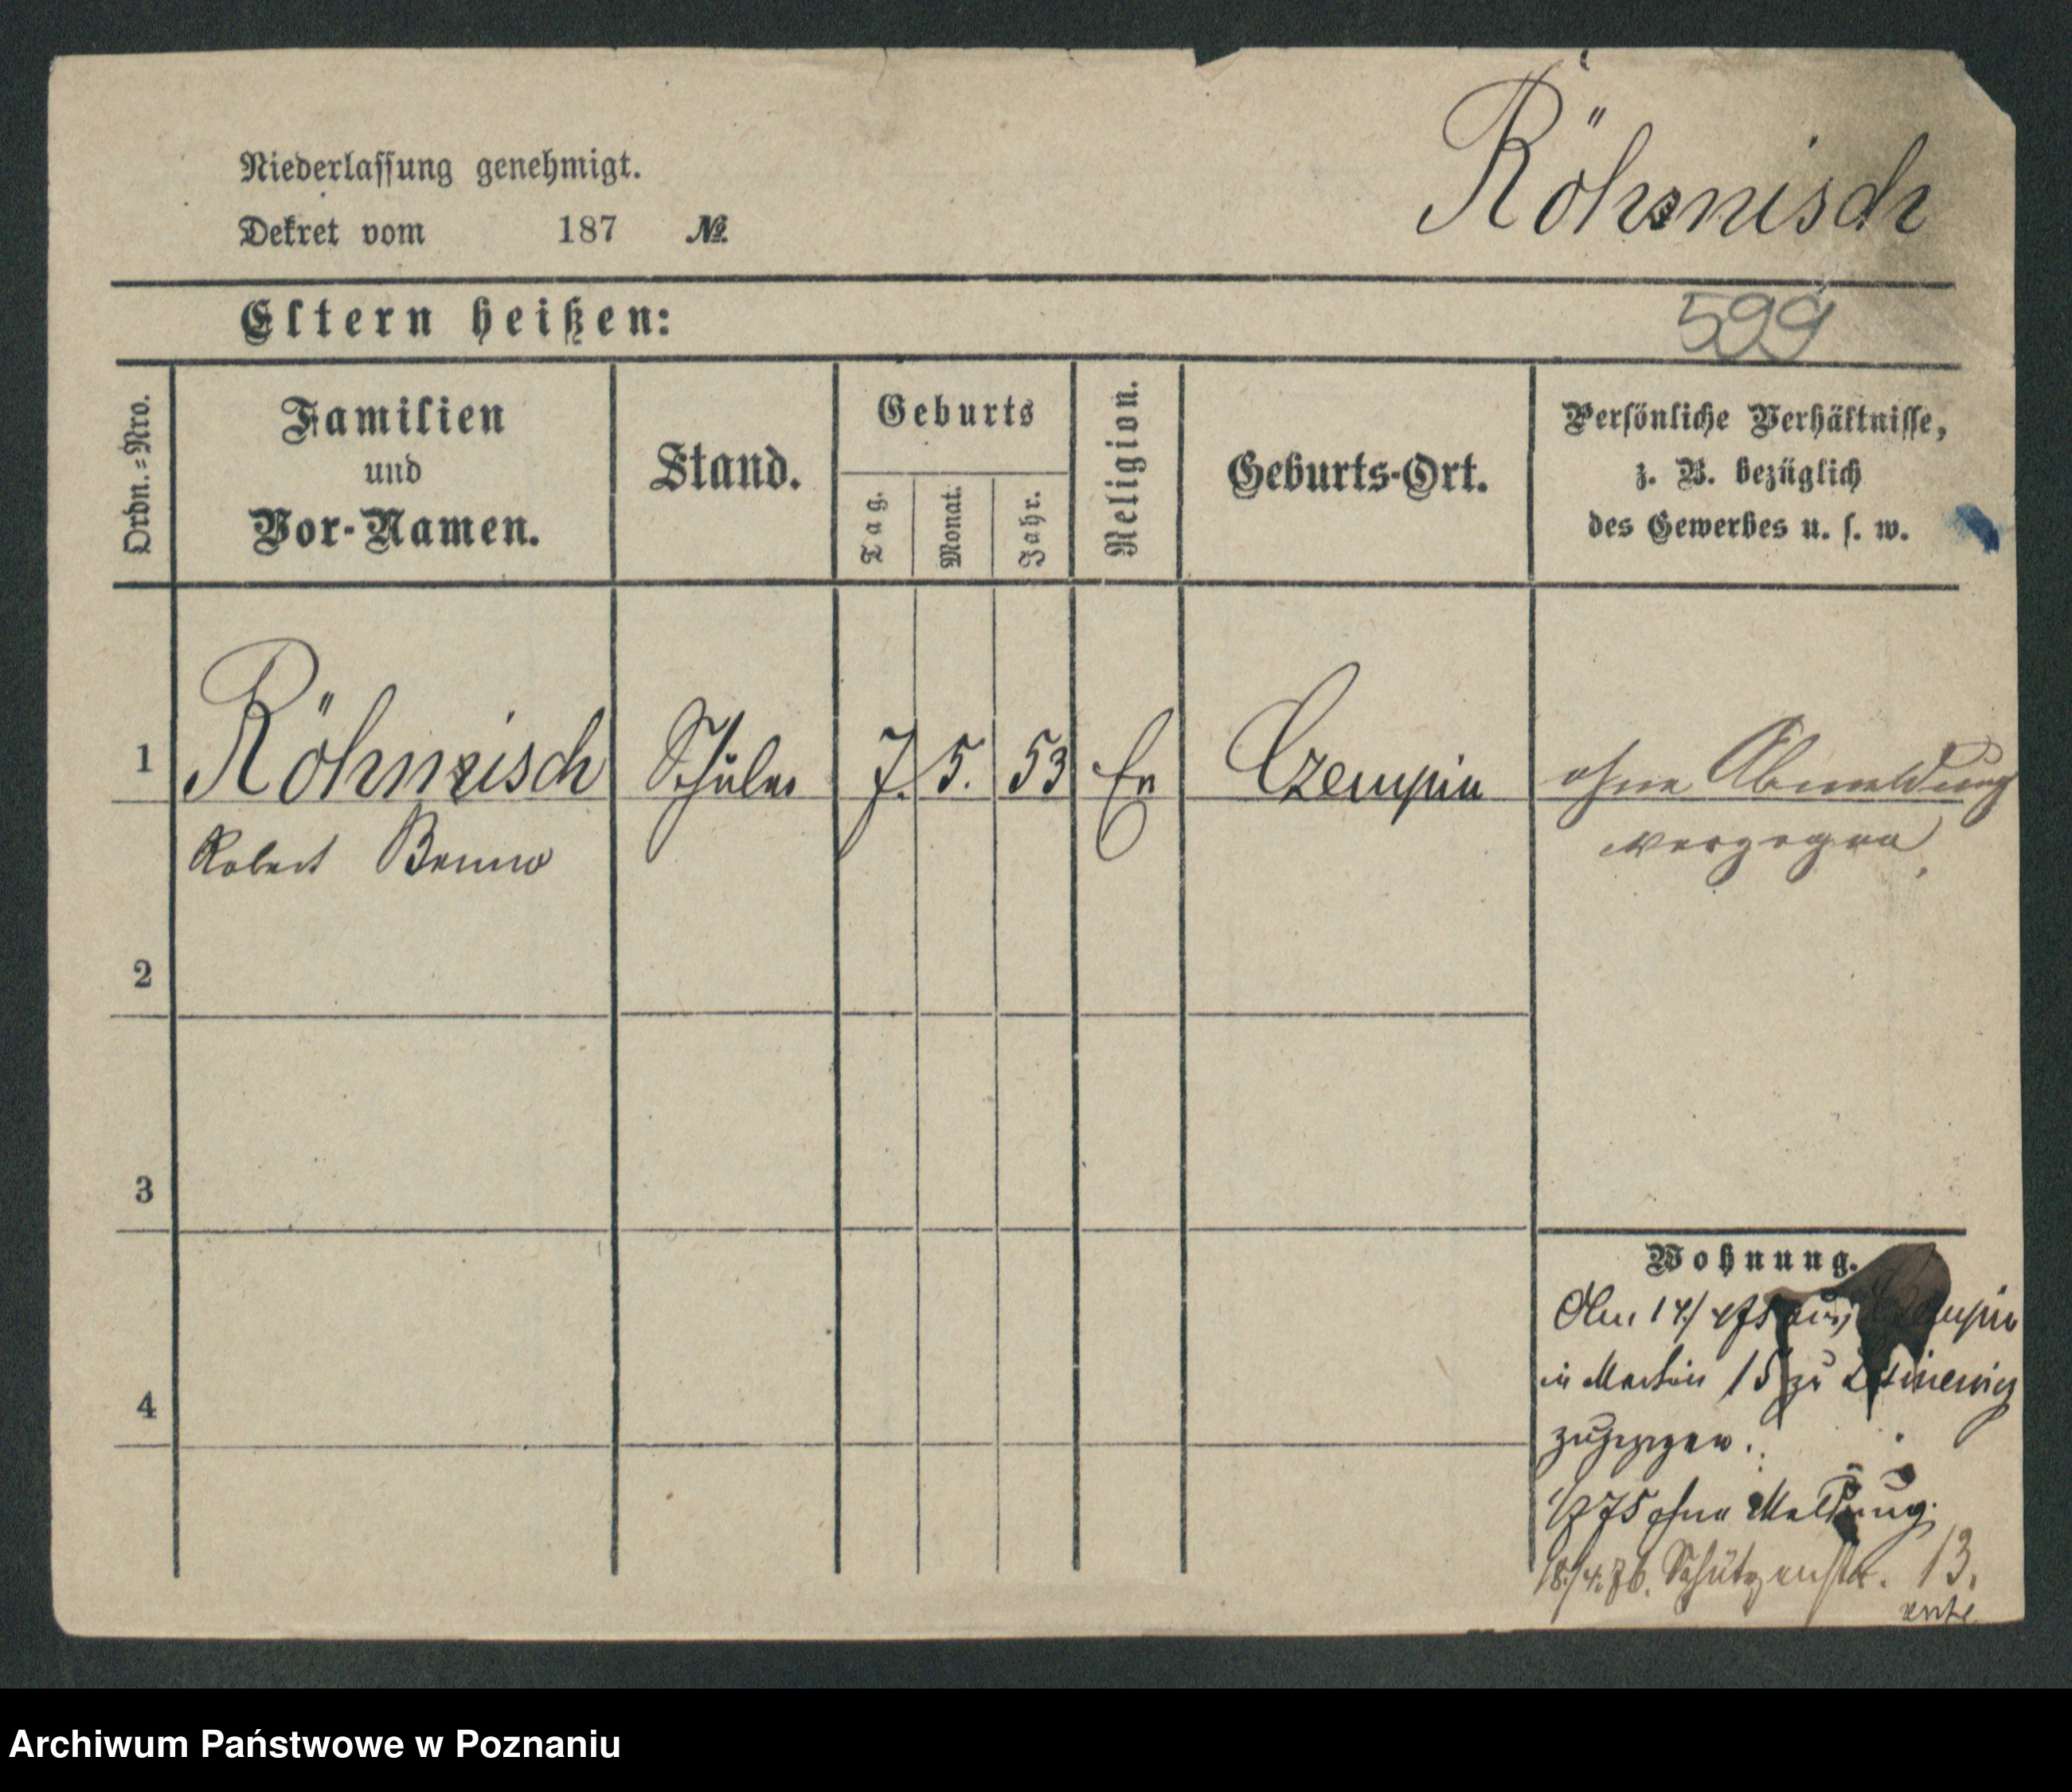 Röhrnisch
Niederlassung genehmigt.
Dekret vom 187 №
Eltern heißen:
599
Ordn.=Nro.
Familien
und
Vor-Namen.
Stand.
Geburts
Tag.
Monat.
Jahr.
Religion.
Geburts-Ort.
Persönliche Verhältnisse,
z. B. bezüglich
des Gewerbes u. s. w.
1 Schüler 7. 5. 53 Ev Czempin ohne Abmeldung
Robert Benno verzogen.
2
3
4
Wohnung.
Am aus Czempin
in Martin 15 zu
zugezogen.
75 ohne Meldung.
18/4.76. Schützenstr. 13.
Archiwum Państwowe w Poznaniu